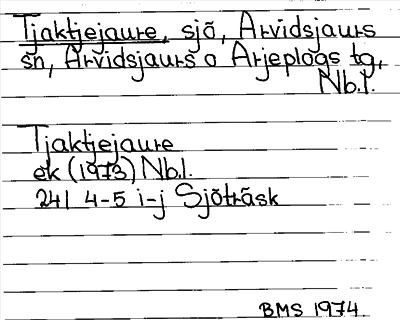 Tjaktjejaure, sjö, Arvidsjaurs
sn, Arvidsjaurs o Arjeplogs tg,
Nb.l.
Tjaktjejaure
ek (1973) Nb.l.
24I 4-5 i-j Sjöträsk
BMS 1974